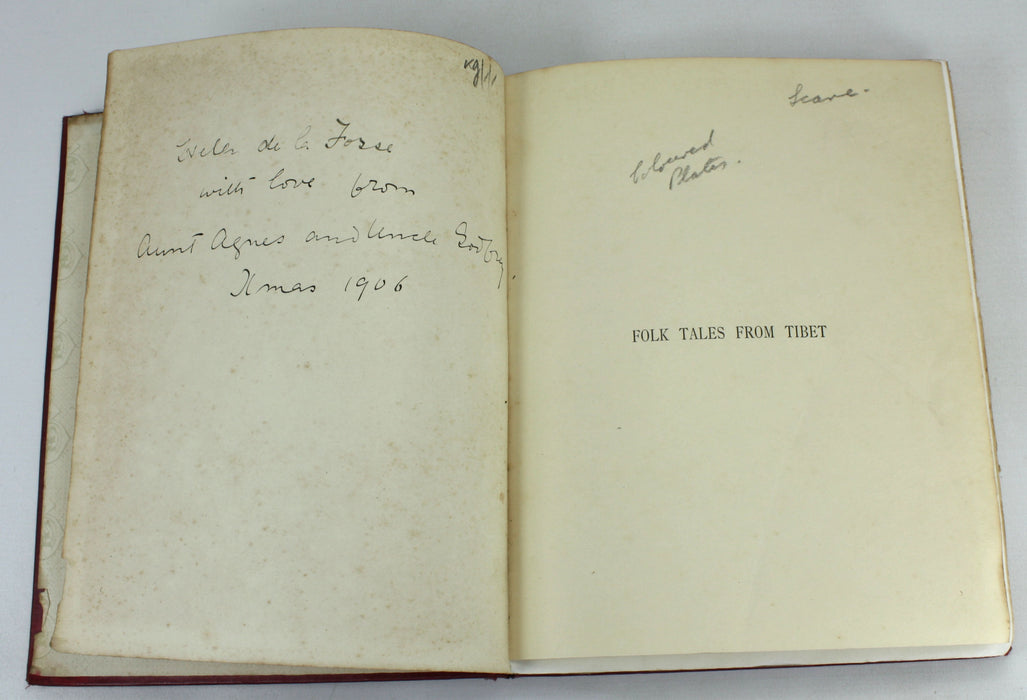 de la Forse
with love from
Aunt Agnes and Uncle Godfrey.
Xmas 1906
Scarce.
Coloured
Plates.
FOLK TALES FROM TIBET